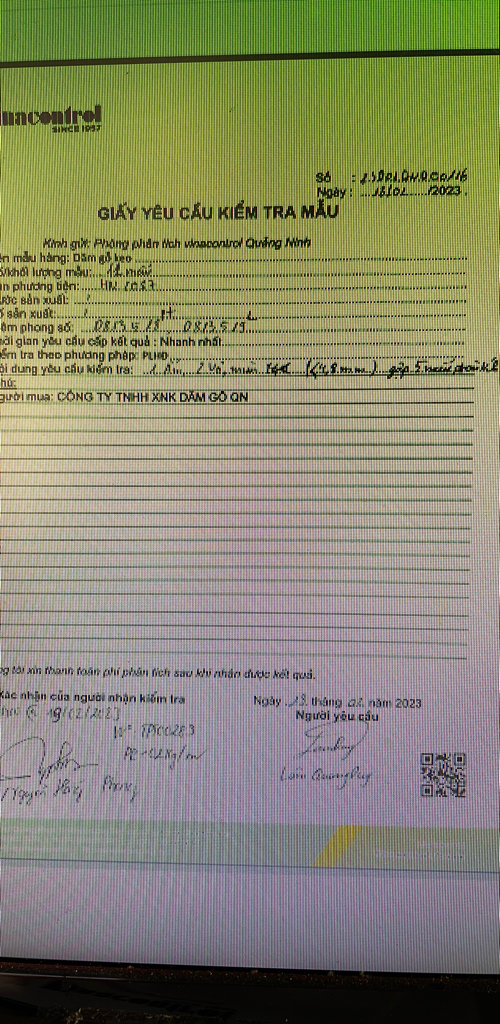 nacontrol
SINCE 1957
Số :
Ngày : 13/02 /2023
GIẤY YÊU CẦU KIỂM TRA MẪU
Kính gửi: Phòng phân tích vinacontrol Quảng Ninh
ên mẫu hàng: Dăm gỗ keo
ố/khối lượng mẫu: 12 mẫu
ên phương tiện: HN 1087
ước sản xuất: /
ố sản xuất: /
iêm phong số: 0813518, 0813519
hời gian yêu cầu cấp kết quả : Nhanh nhất
iểm tra theo phương pháp: PLHĐ
ội dung yêu cầu kiểm tra: 1. Ẩm, 2. Vỏ, mùn (<4,8mm) gộp 5 mẫu
hú:
gười mua: CÔNG TY TNHH XNK DĂM GỖ QN
ng tôi xin thanh toán phí phân tích sau khi nhận được kết quả.
Xác nhận của người nhận kiểm tra
Ngày 13 tháng 02 năm 2023
Người yêu cầu
Nguyễn Phong
Quang Duy